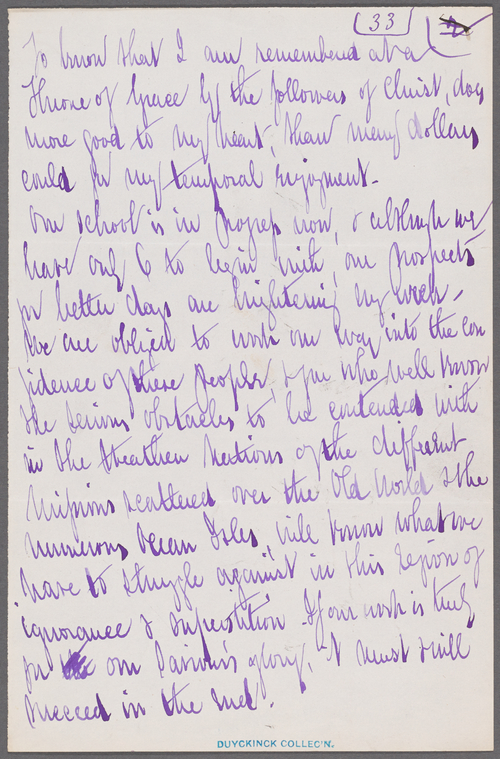 (33)
To know that I am remembered at a
Throne of Grace by the followers of Christ, does
more good to my heart, than many dollars
could for my temporal enjoyment.
Our school is in progress now, & although we
have only 6 to begin with, our prospects
for better days are brightening by week.
We are obliged to work our way into the con
fidence of these people, & you who well know
the serious obstacles to be contended with
in the Heathen Nations of the different
Missions scattered over the Old World & the
numerous Ocean Isles, will know what we
have to struggle against in this region of
ignorance & superstition. If our work is truly
for our Saviour's glory, it must & will
succeed in the end.
DUYCKINCK COLLEC'N.